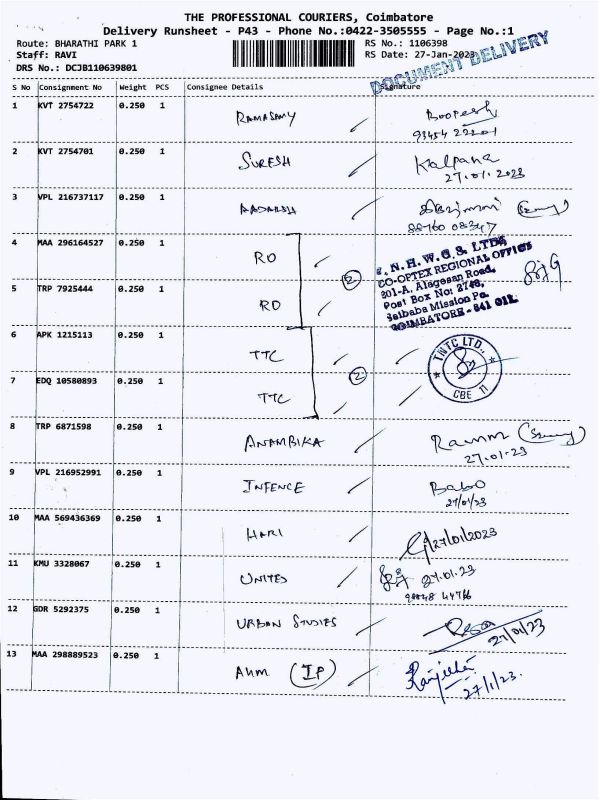 THE PROFESSIONAL COURIERS, Coimbatore
Delivery Runsheet - P43 - Phone No.:0422-3505555 - Page No.:1
Route: BHARATHI PARK 1
RS No.: 1106398
Staff: RAVI
RS Date: 27-Jan-2023
DRS No.: DCJB110639801
DOCUMENT DELIVERY
S No Consignment No Weight PCS Consignee Details Signature
1 KVT 2754722 0.250 1 RAMASAMY Boopesh
93454 22201
2 KVT 2754701 0.250 1 SURESH Kalpana
27.01.2023
3 VPL 216737117 0.250 1 AADARSH
88760 08347
4 MAA 296164527 0.250 1 RO
5 TRP 7925444 0.250 1 RO
2
T.N.H.W.C.S. LTD.
CO-OPTEX REGIONAL OFFICE
201-A, Alagesan Road,
Post Box No: 2746,
Saibaba Mission Po.
COIMBATORE - 641 011.
6 APK 1215113 0.250 1 TTC
7 EDQ 10580893 0.250 1 TTC
2
TNTC LTD.,
CBE 11
8 TRP 6871598 0.250 1 ANAMBIKA
27.01.23
9 VPL 216952991 0.250 1 INFENCE Babo
27/01/23
10 MAA 569436369 0.250 1 HARI
27/01/2023
11 KMU 3328067 0.250 1 UNITED 27.01.23
12 GDR 5292375 0.250 1 URBAN STUDIES
27/01/23
13 MAA 298889523 0.250 1 AHM (IP) Ranjitha
27/1/23.